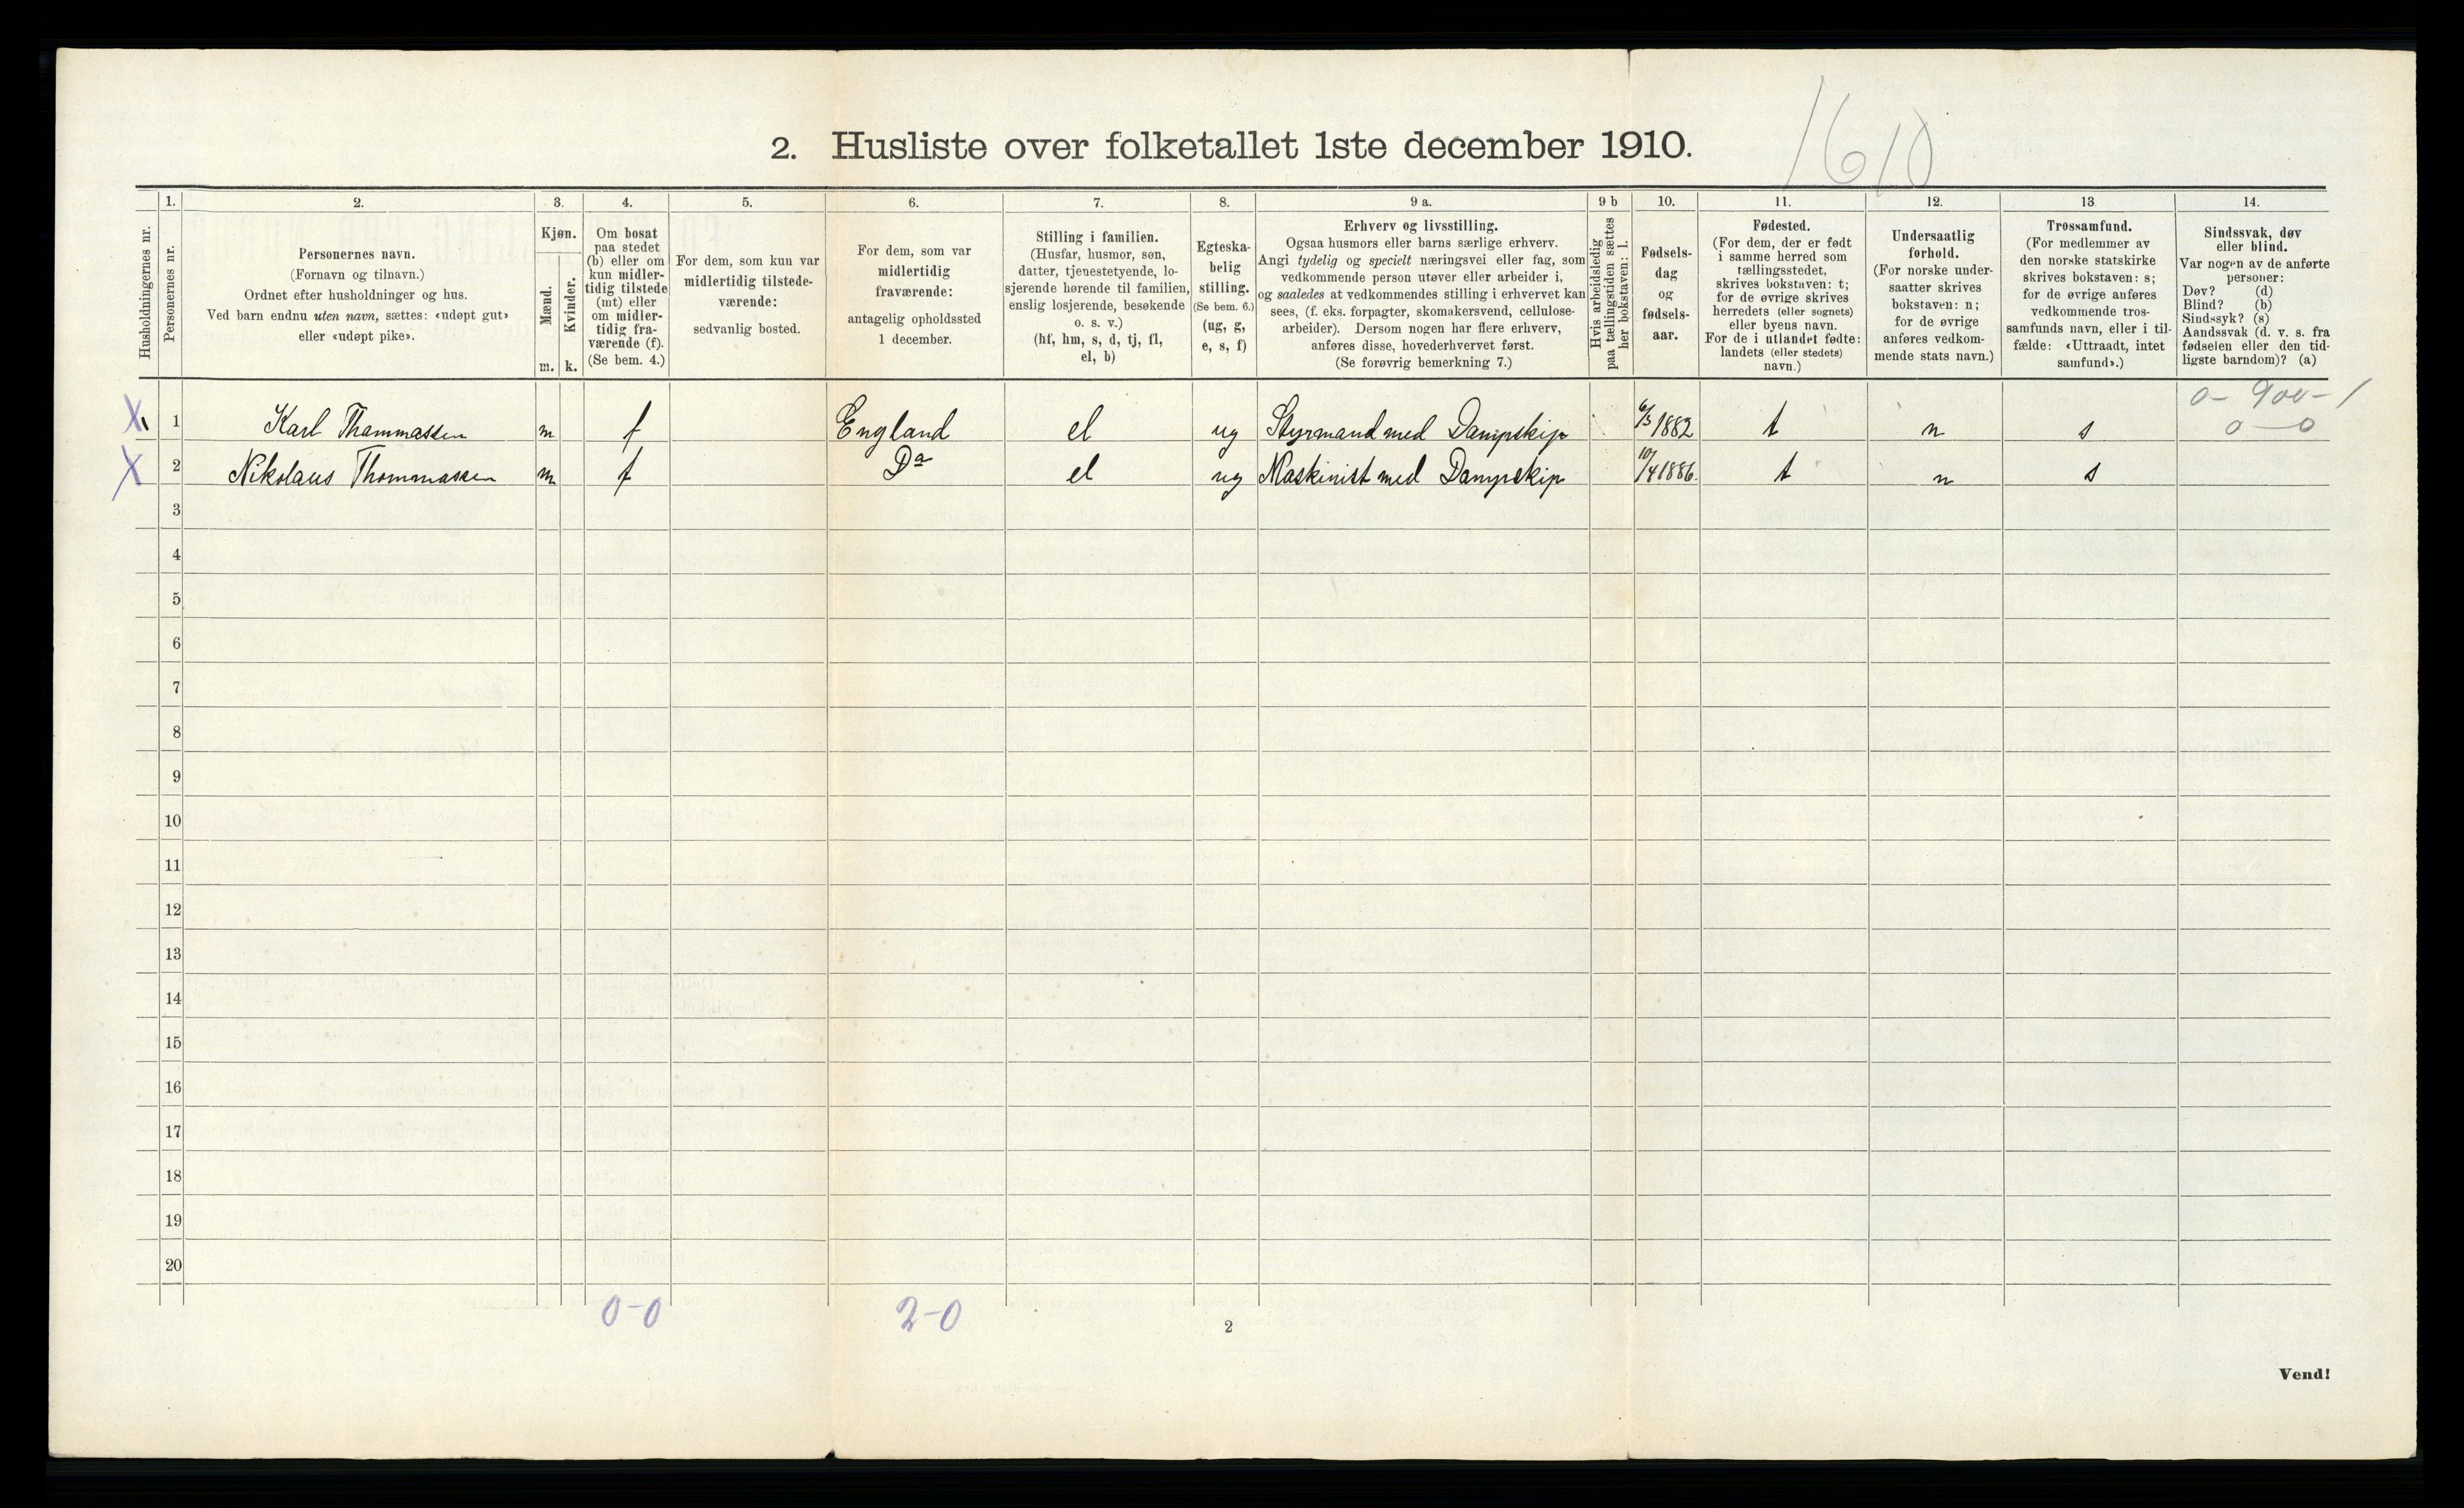 1610
2. Husliste over folketallet 1ste december 1910.
Husholdningernes nr.
1.
Personernes nr.
2.
Personernes navn.
(Fornavn og tilnavn.)
Ordnet efter husholdninger og hus.
Ved barn endnu uten navn, sættes: «udøpt gut»
eller «udøpt pike».
3.
Kjøn.
Mænd.
m.
Kvinder.
k.
4.
Om bosat
paa stedet
(b) eller om
kun midler-
tidig tilstede
(mt) eller
om midler-
tidig fra-
værende (f).
(Se bem. 4.)
5.
For dem, som kun var
midlertidig tilstede-
værende:
sedvanlig bosted.
6.
For dem, som var
midlertidig
fraværende:
antagelig opholdssted
1 december.
7.
Stilling i familien.
(Husfar, husmor, søn,
datter, tjenestetyende, lo-
sjerende hørende til familien,
enslig losjerende, besøkende
o. s. v.)
(hf, hm, s, d, tj, fl,
el, b)
8.
Egteska-
belig
stilling.
(Se bem. 6.)
(ug, g,
e, s, f)
9 a.
Erhverv og livsstilling.
Ogsaa husmors eller barns særlige erhverv.
Angi tydelig og specielt næringsvei eller fag, som
vedkommende person utøver eller arbeider i,
og saaledes at vedkommendes stilling i erhvervet kan
sees, (f. eks. forpagter, skomakersvend, cellulose-
arbeider). Dersom nogen har flere erhverv,
anføres disse, hovederhvervet først.
(Se forøvrig bemerkning 7.)
9 b
Hvis arbeidsledig
paa tællingstiden sættes
her bokstaven: l.
10.
Fødsels-
dag
og
fødsels-
aar.
11.
Fødested.
(For dem, der er født
i samme herred som
tællingsstedet,
skrives bokstaven: t;
for de øvrige skrives
herredets (eller sognets)
eller byens navn.
For de i utlandet fødte:
landets (eller stedets)
navn.)
12.
Undersaatlig
forhold.
(For norske under-
saatter skrives
bokstaven: n;
for de øvrige
anføres vedkom-
mende stats navn.)
13
Trossamfund.
(For medlemmer av
den norske statskirke
skrives bokstaven: s;
for de øvrige anføres
vedkommende tros-
samfunds navn, eller i til-
fælde: «Uttraadt, intet
samfund».)
14.
Sindssvak, døv
eller blind.
Var nogen av de anførte
personer:
Døv? (d)
Blind? (b)
Sindssyk? (s)
Aandssvak (d. v. s. fra
fødselen eller den tid-
ligste barndom)? (a)
0 - 900 - 1
0 - 0
X 1 Karl Thommassen m f England el ug Styrmand med Dampskip 6/3 1882 t n s
X 2 Nikolaus Thommassen m f Do el ug Maskinist med Dampskip 10/4 1886. t n s
3
4
5
6
7
8
9
10
11
12
13
14
15
16
17
18
19
20
0-0 2-0
2
Vend!